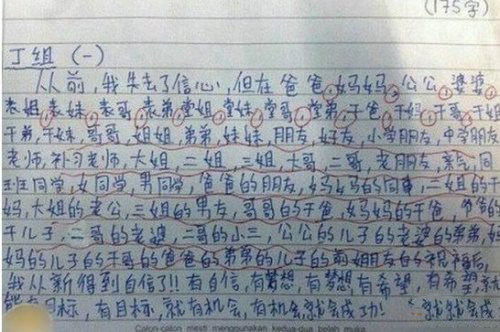 (175字)
丁组 (一)
从前,我失去了信心,但在爸爸,妈妈,公公,婆婆,
表姐,表妹,表哥,表弟,堂姐,堂妹,堂哥,堂弟,干爸,干妈,干哥,干姐
干弟,干妹,哥哥,姐姐,弟弟,妹妹,朋友,好友,小学朋友,中学朋友
老师,补习老师,大姐,二姐,三姐,大哥,二哥,老朋友,亲戚,同
班同学,女同学,男同学,爸爸的朋友,妈妈的同事,二姐的干
妈,大姐的老公,三姐的男友,哥哥的干爸,妈妈的干爸,爷爷的
干儿子,二哥的老婆,二哥的小三,公公的儿子的老婆的弟弟,妈
妈的儿子的干哥的爸爸的弟弟的儿子的前姐友的祝福后,
我从新得到自信了!!有自信,有梦想,有梦想有希望,有希望,就
能有目标,有目标,就有机会,有机会,就会成功! "就就会成
Calon-calon mesti menggunakan kedua-dua belah muka